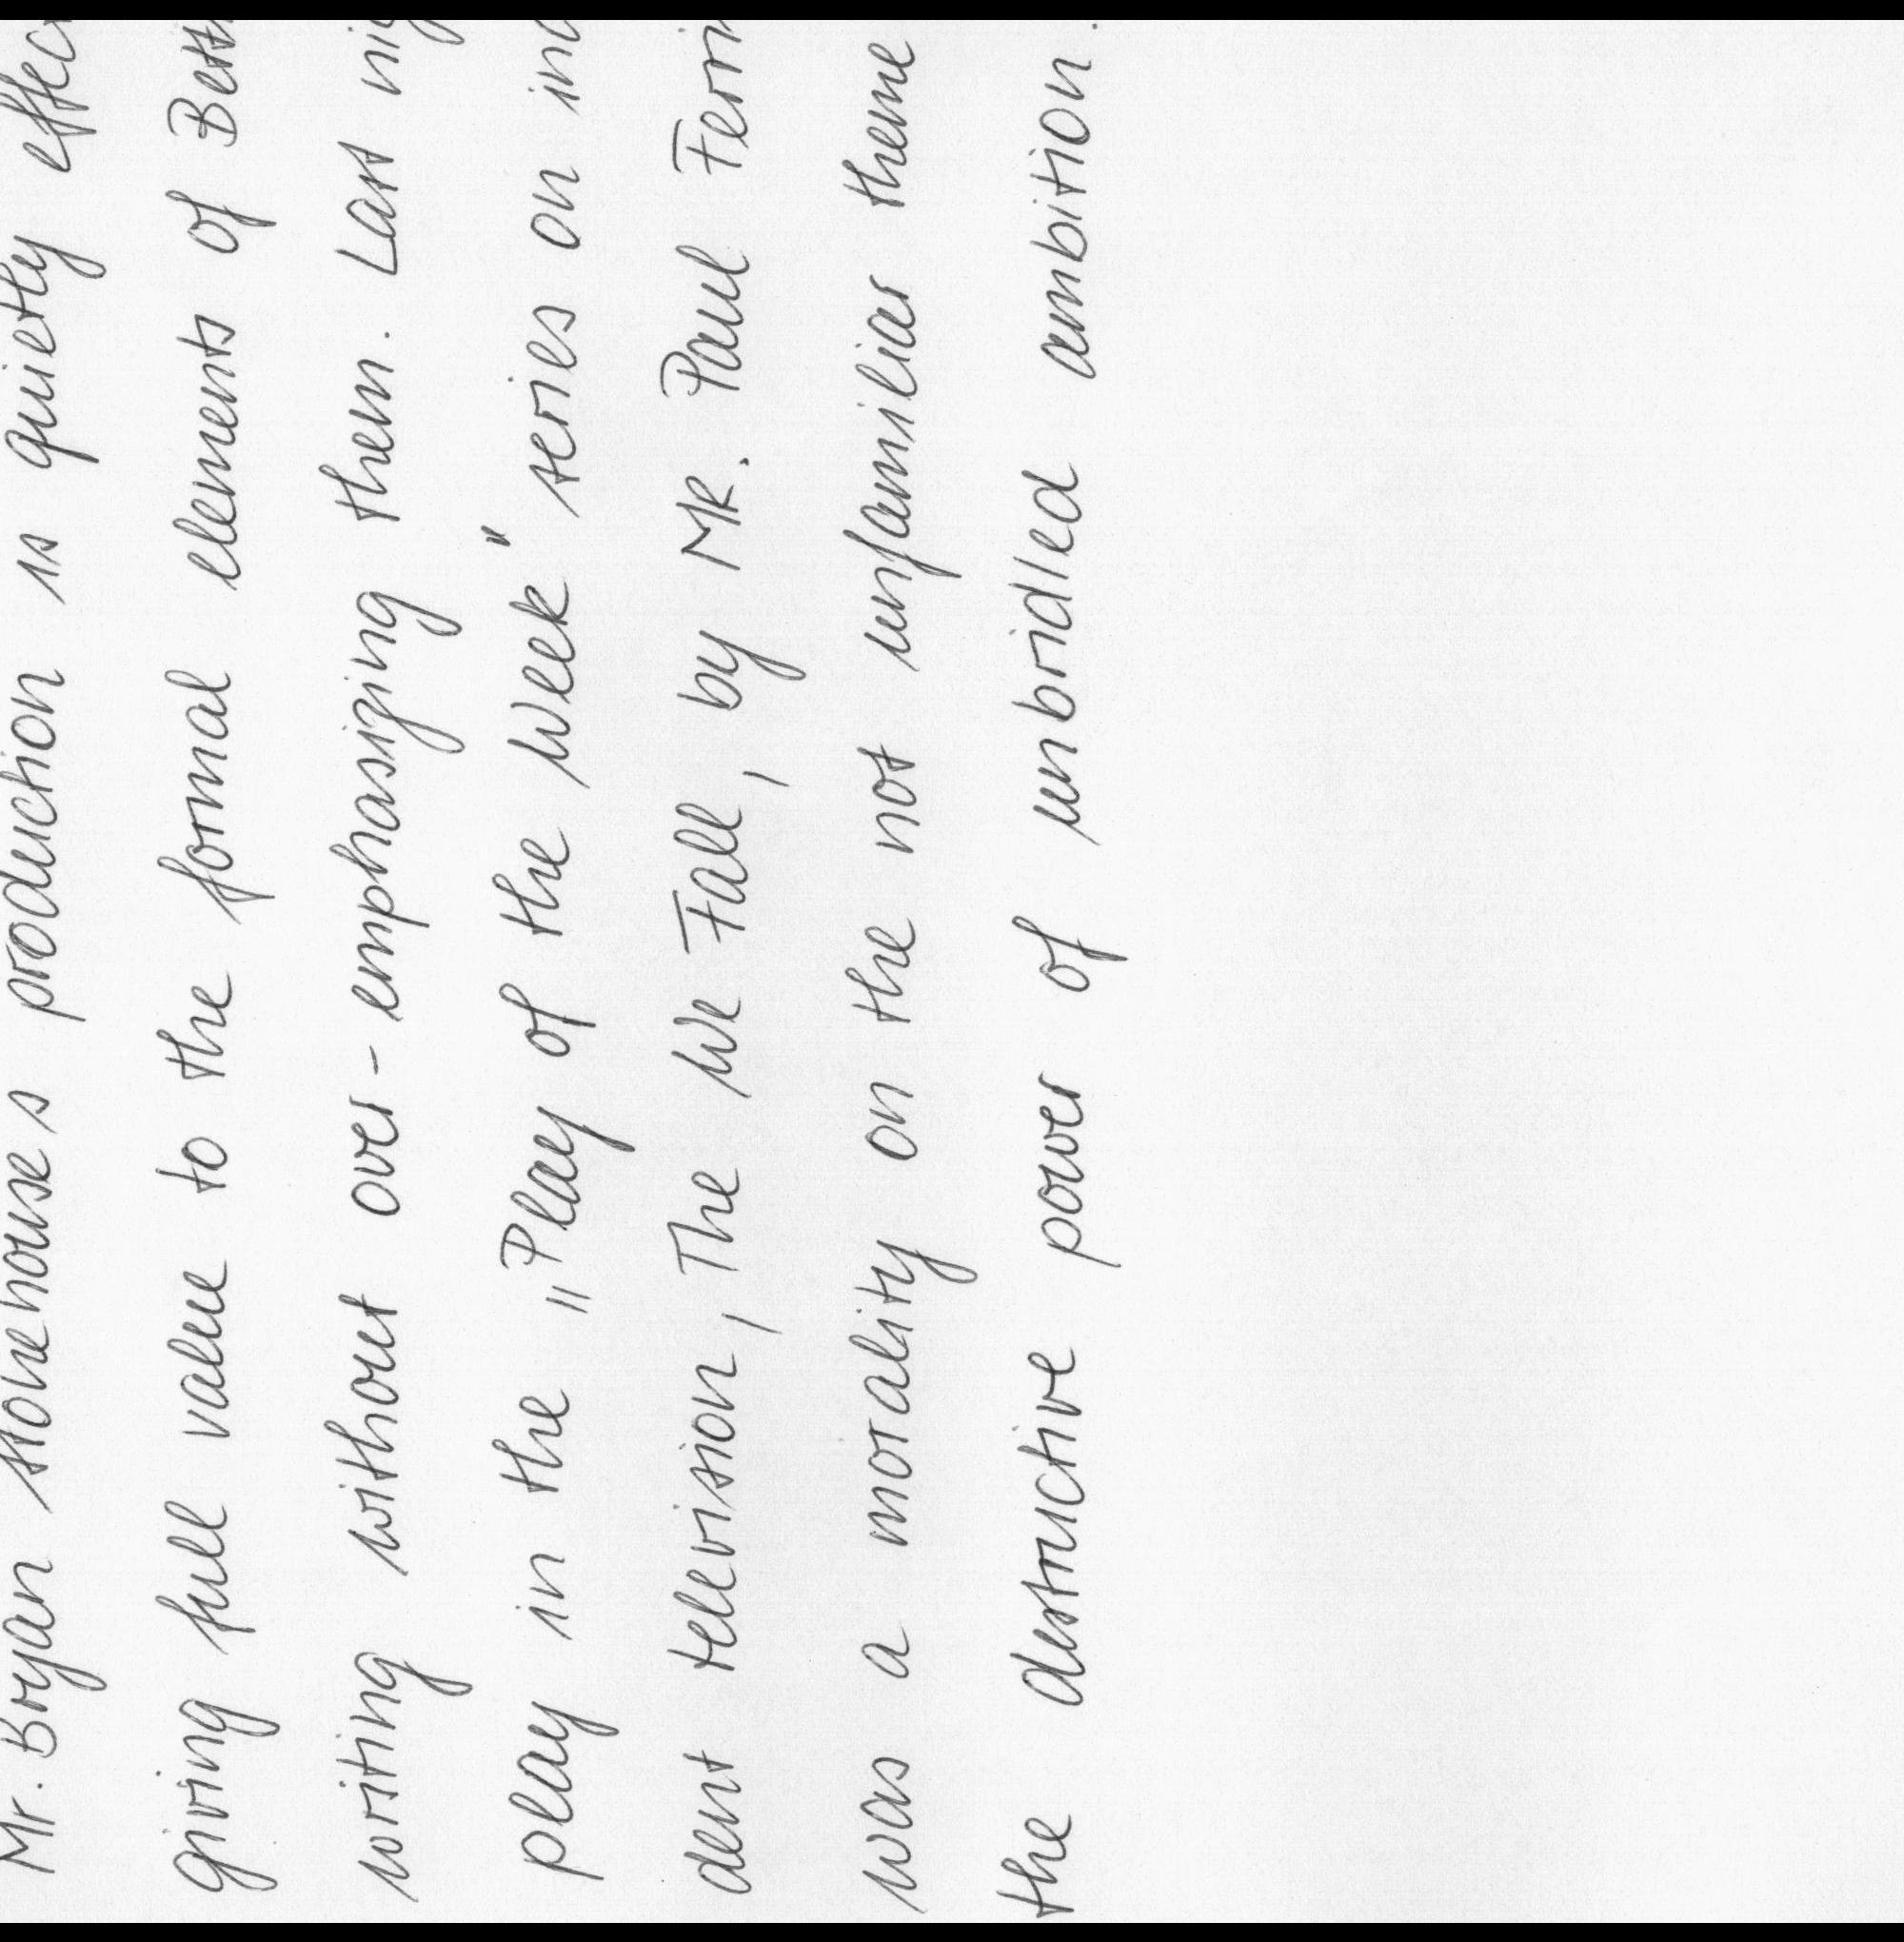 Mr. Bryan Stonehouse's production is quietly
giving full value to the formal elements of
writing without over-emphasizing them. Last
play in the "Play of the Week" series on
dent television, The We Fall, by MR. Paul
was a morality on the not unfamiliar theme
the destructive power of unbridled ambition.